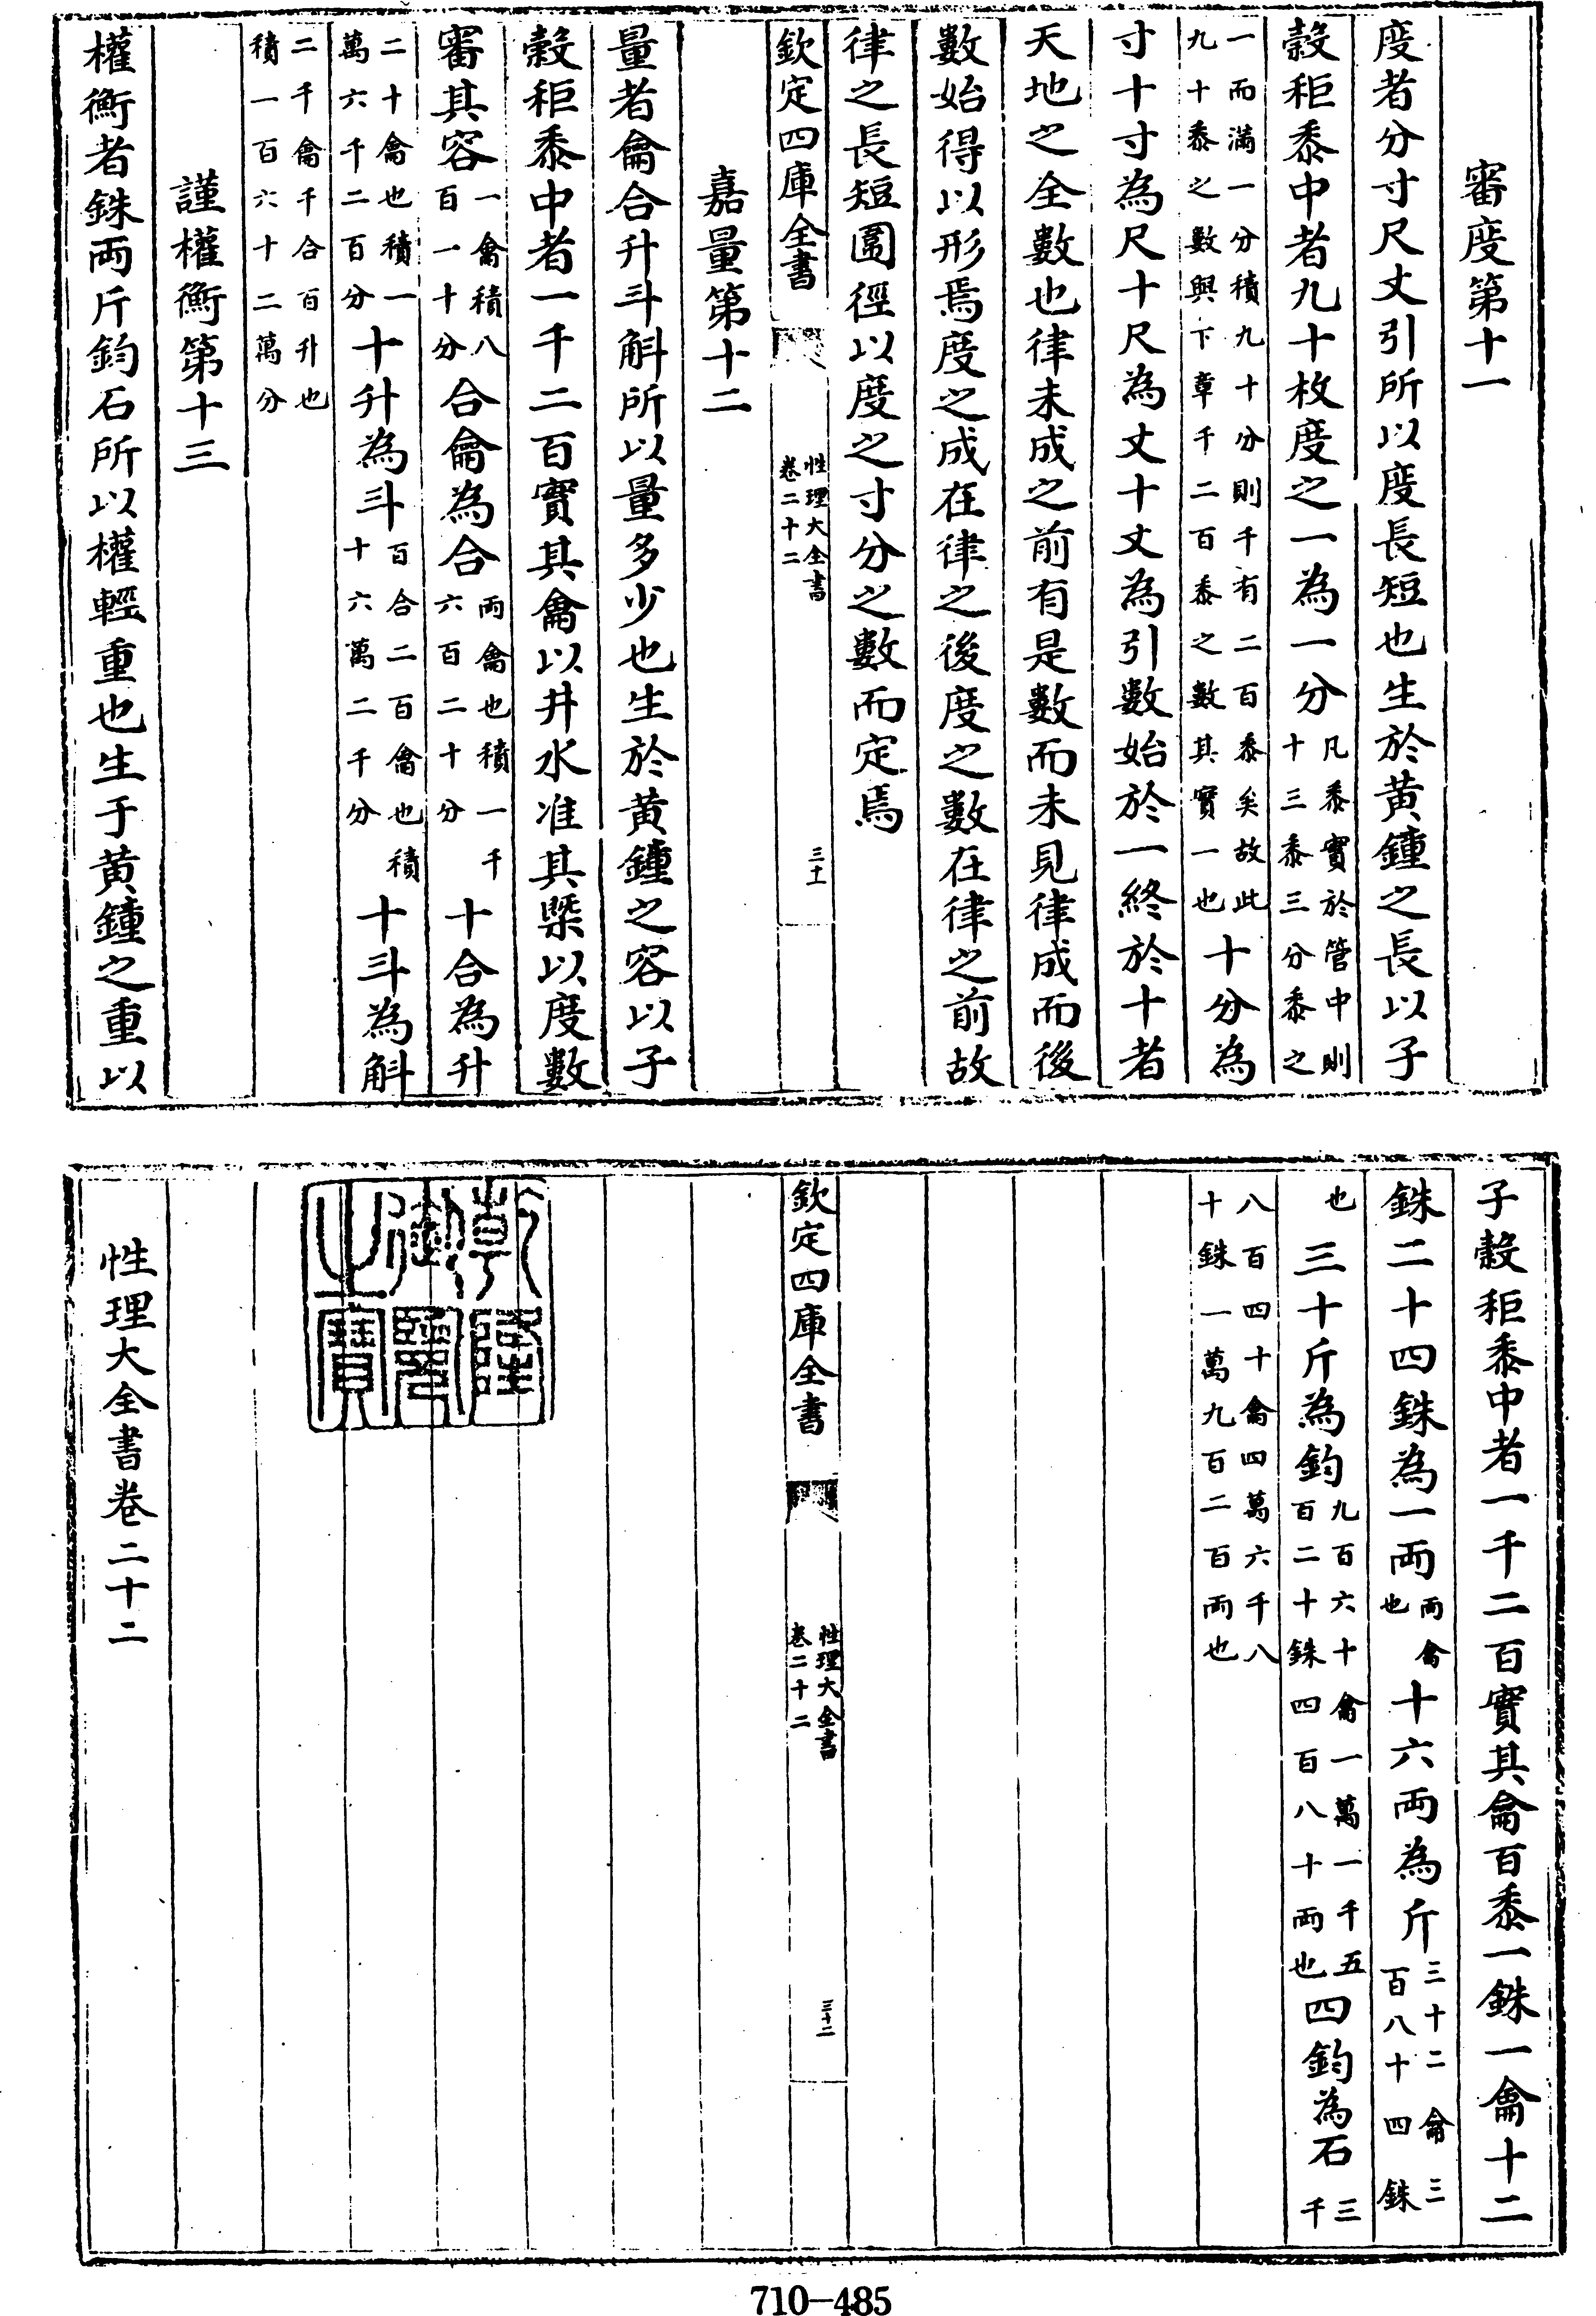 審度第十一
度者分寸尺丈引所以度長短也生於黄鍾之長以子
穀秬黍中者九十枚度之一為一分凡黍實於管中則十三黍三分黍之
一而滿一分積九十分則千有二百黍矣故此九十黍之數與下章千二百黍之數其實一也十分為
寸十寸為尺十尺為丈十丈為引數始於一終於十者
天地之全數也律未成之前有是數而未見律成而後
數始得以形焉度之成在律之後度之數在律之前故
律之長短圍徑以度之寸分之數而定焉
欽定四庫全書 性理大全書卷二十二 三十一
嘉量第十二
量者龠合升斗斛所以量多少也生於黄鍾之容以子
穀秬黍中者一千二百實其龠以井水准其槩以度數
審其容一龠積八百一十分合龠為合兩龠也積一千六百二十分十合為升
二十龠也積一萬六千二百分十升為斗百合二百龠也積十六萬二千分十斗為斛
二千龠千合百升也積一百六十二萬分
謹權衡第十三
權衡者銖兩斤鈞石所以權輕重也生于黄鐘之重以
子穀秬黍中者一千二百實其龠百黍一銖一龠十二
銖二十四銖為一兩兩龠也十六兩為斤三十二龠三百八十四銖
也三十斤為鈞九百六十龠一萬一千五百二十銖四百八十兩也四鈞為石三千
八百四十龠四萬六千八十銖一萬九百二百兩也
欽定四庫全書 性理大全書卷二十二 三十二
乾隆御覽之寶
性理大全書卷二十二
710-485